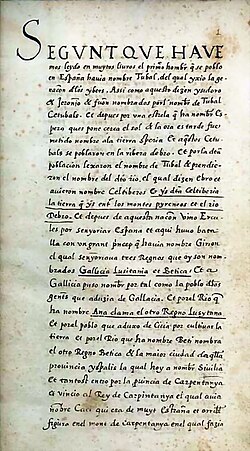 1
SEGUNT QUE HAVE
mos leydo en muytos livros el primo hombr q se poblo
en España havia nombre Tubal, del qual yxio la ge
nacion dlos ybers. Assi como aquesto dizen ysidoro
& Jeronio & fuon nombrados por l nombr de Tubal
Cetubals. Et depues por una estrela q ha nombr Es
pero ques pone cerca el sol & la ora es tarde fue
metido nombre ala tierra Speria Et aqstos Cetu
bals se poblaron en la ribera debro. Et por la dita
poblacion lexaron el nombre de Tubal & prendie
ron el nombre del dio rio, el qual dizen Ebro et
avieron nombre Celtiberos & ys dita Celtiberia
la tierra q ys ent los montes pyreneos et el rio
Debro. Et depues de aquesta nacion vino Ercu
les por senyoriar España et aqui huvo bata
lla con un grant princep q havia nombre Girion
el qual senyoriava tres Regnos que oy son nom
brados Gallicia Lusitania et Betica: Et a
Gallicia puso nombr por tal como la poblo dlas
gents que aduzia de Gallacia. Et por el Rio q
ha nombre Ana clama el otro Regno Lusytana
et por el poble que aduxo de Gicia por cultivar la
tierra et por el Rio que ha nombre Beti nombra
el otro Regno Betica & la maior ciudat daqlla
provincia yspalis la qual hoy a nombr Sivilia
Et tantost entro por la provincia de Carpentanya
et vincio al Rey de Carpintanya el qual avia
nobre Caci qui era de muy estraña et orrible
figura en el mont de Carpentanya en el qual fazia